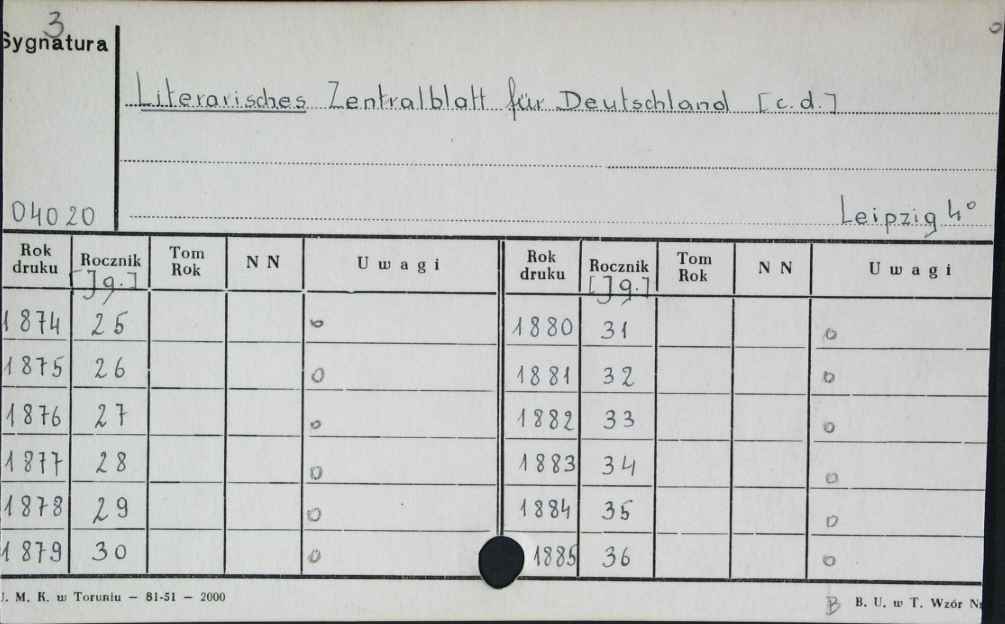 3
Sygnatura
Literarisches Zentralblatt für Deutschland [c.d.]
04020
Leipzig 4°
Rok druku Rocznik [Jg.] Tom Rok N N Uwagi Rok druku Rocznik [Jg.] Tom Rok N N Uwagi
1874 25 o 1880 31 o
1875 26 o 1881 32 o
1876 27 o 1882 33 o
1877 28 o 1883 34 o
1878 29 o 1884 35 o
1879 30 o 1885 36 o
J. M. K. w Toruniu — 81-51 — 2000
B B. U. w T. Wzór Nr